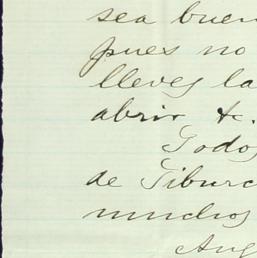 sea buen
pues no
lleves la
abrir &.
Todos
de Tiburc
muchos
Aug